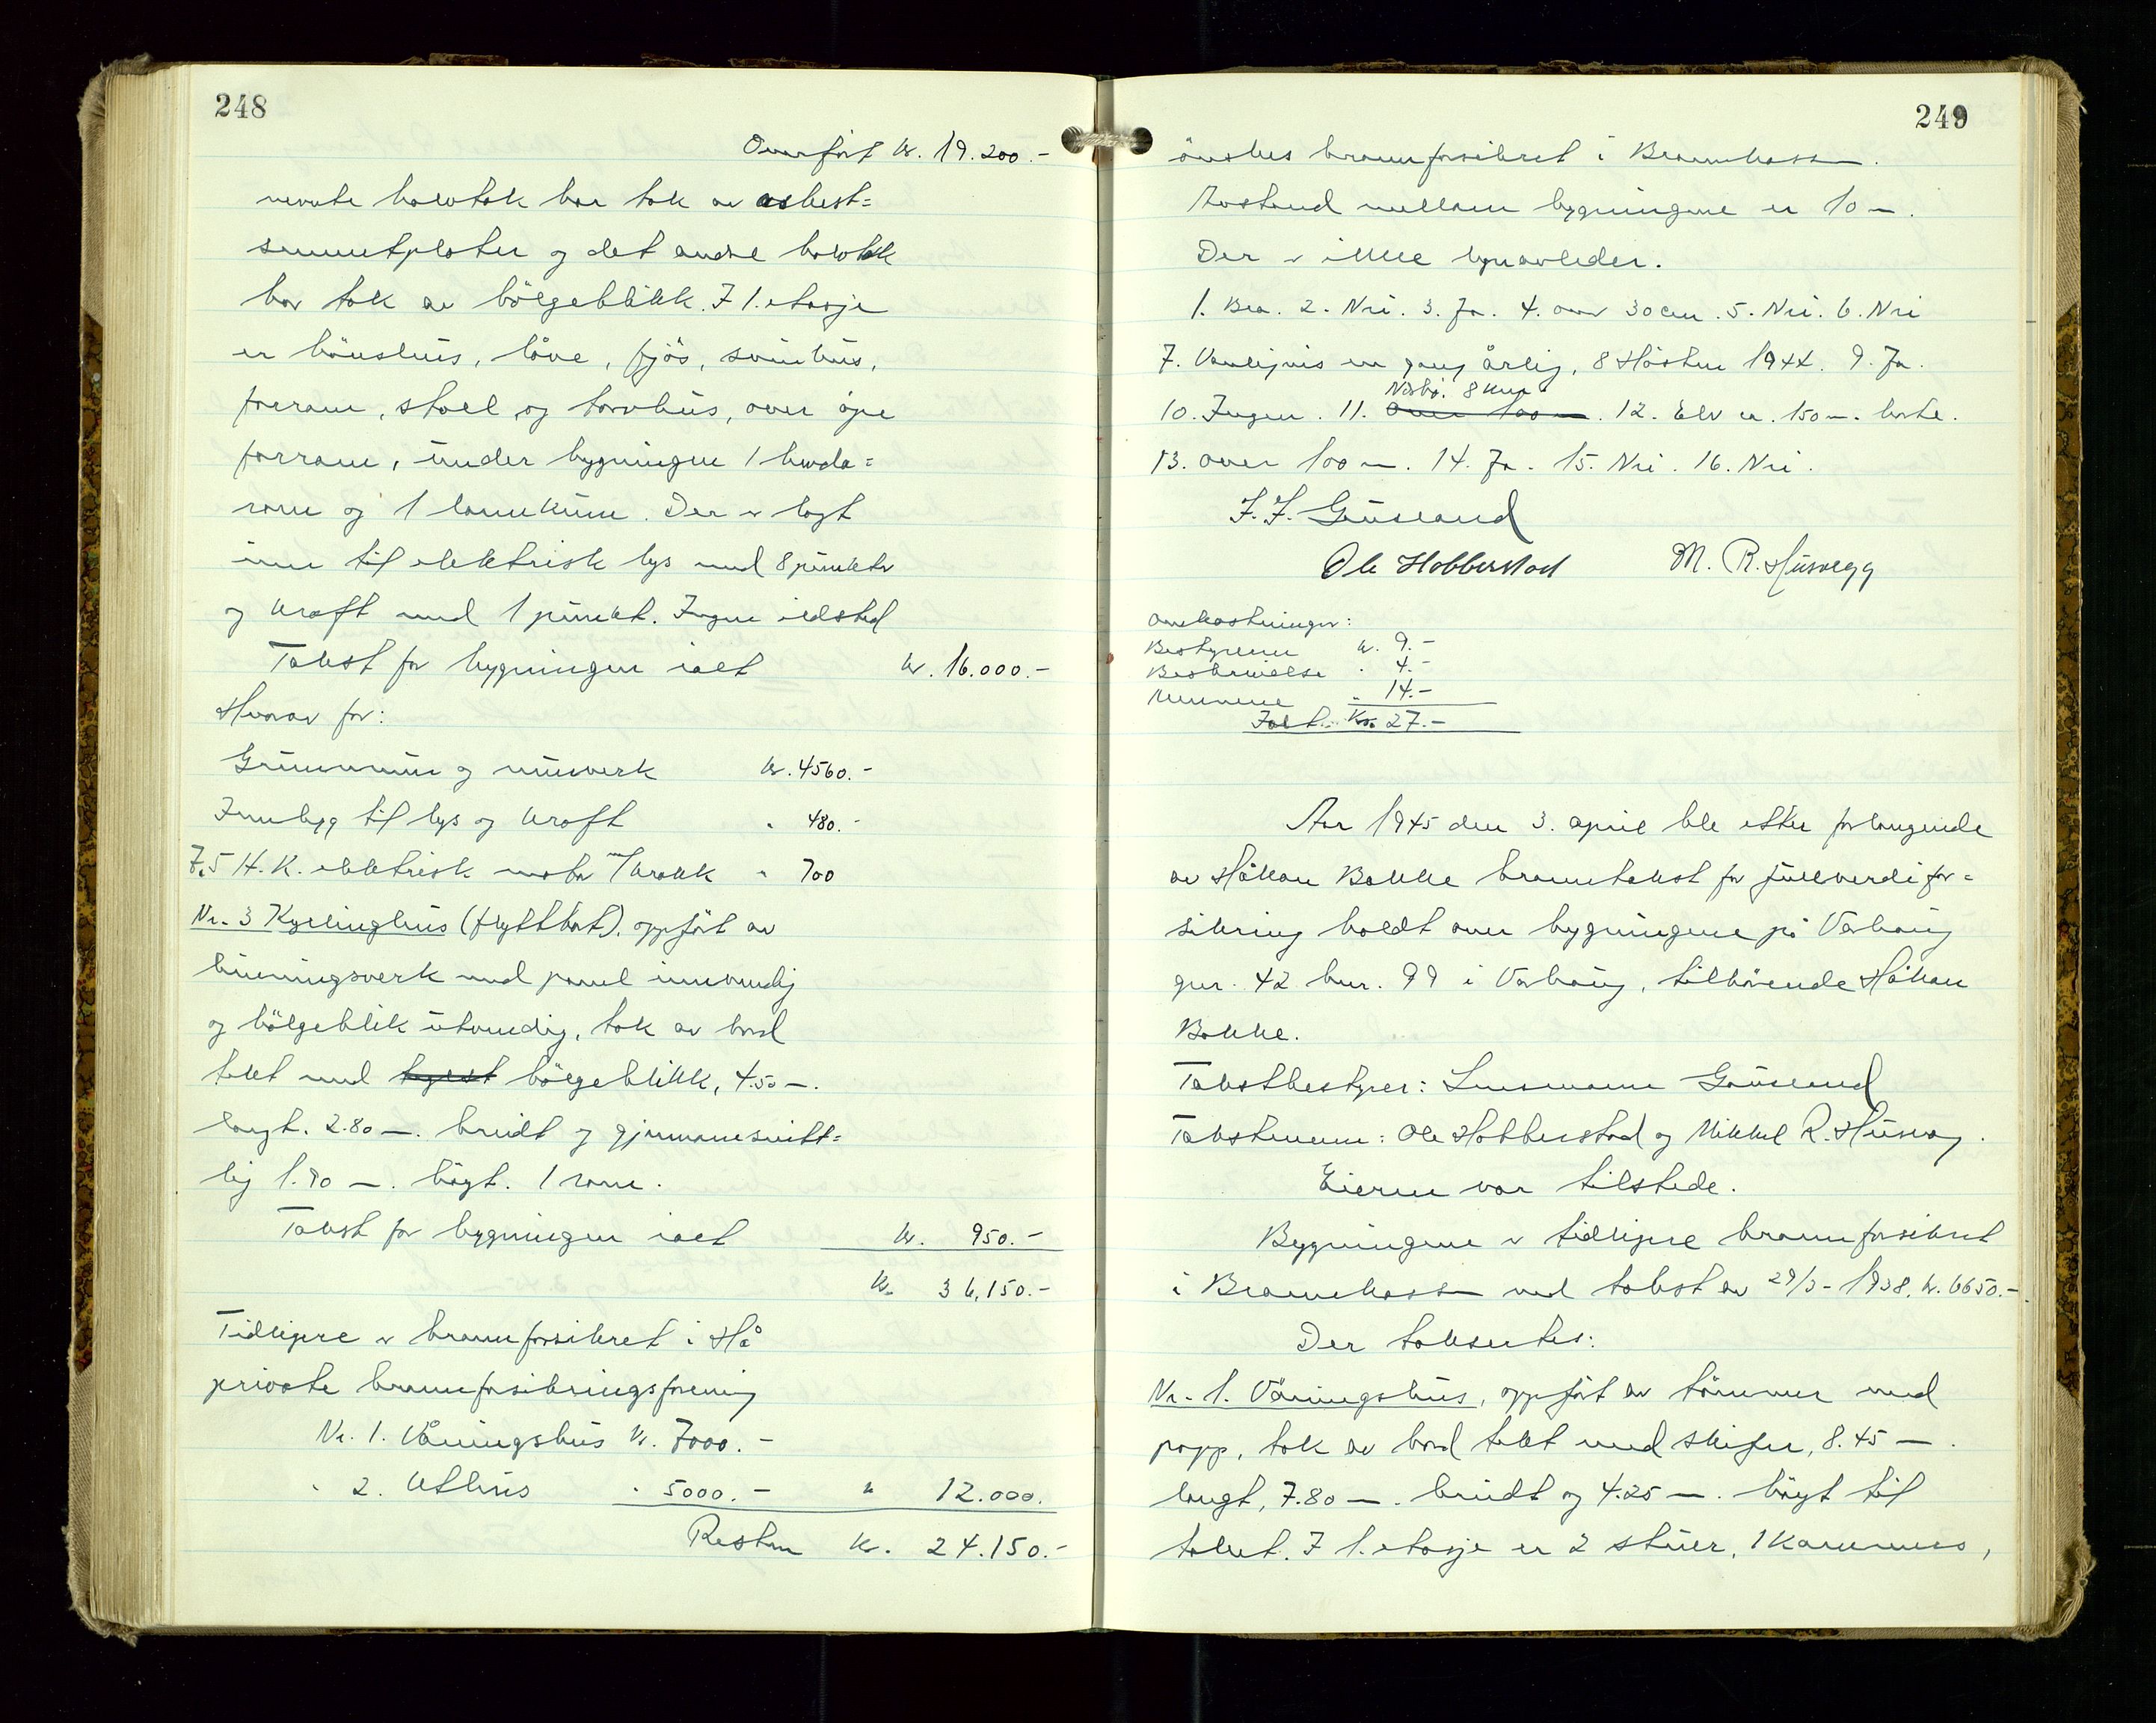 248
Overført kr. 19.200.-
nevnte halvtak har tak av asbest=
sementplater og det andre halvtak
har tak av bölgeblikk. I 1. etasje
er hönsehus, löve, fjös, svinehus,
forrom, stall og torvhus, over åpe
forrom, under bygningen 1 havda=
rom og 1 lannkum. Der er lagt
inn til elektrisk lys med 8 punkter
og kraft med 1 punkt. Ingen ildsted
Takst for bygningen ialt kr. 16.000.-
Hvorav for:
Grunnmur og murverk kr. 4560.-
Innlegg til lys og kraft " 480.-
7,5 H.K. elektrisk motor m/krakk " 700
Nr. 3 Kyllinghus (flyttbart), oppfört av
binningsverk med panel innvendig
og bölgeblik utvendig, tak av bord
tekt med bölgeblikk, 4.50 m.
langt. 2.80 m. breidt og gjennemsnitt=
lig 1.90 m. högt. 1 rom.
Takst for bygningen ialt kr. 950.-
Kr. 36,150.-
Tidligere er brannforsikret i Hå
private brannforsikringsforening
Nr. 1. Våningshus kr. 7000.-
" 2. Uthus " 5000.- " 12.000.
Resten kr. 24.150.-
249
önskes brannforsikret i Brannkassen.
Avstand mellem bygningene er 10 m.
Der er ikke lynavleder.
1. Bra. 2. Nei. 3. Ja. 4. over 30 cm. 5. Nei. 6. Nei
7. Vanligvis en gang årlig, 8 Hösten 1944. 9. Ja.
Nærbö. 8 km
10. Ingen. 11. over 100 m. 12. Elv er 150 m. borte.
13. over 100 m. 14. Ja. 15. Nei. 16. Nei.
J. J. Grusland
Ole Hobberstad M. R. Husvegg
Omkostninger:
Bestyreren kr. 9.-
Beskrivelse " 4.-
Mennene " 14.-
Ialt Kr. 27.-
Aar 1945 den 3. april ble etter forlangende
av Håkon Bakke branntakst for fullverdifor=
sikring holdt over bygningene på Varhaug
gnr. 42 bnr. 99 i Varhaug, tilhörende Håkon
Bakke.
Takstbestyrer: Lensmann Grusland
Takstmenn: Ole Hobberstad og Mikkel R. Husveg.
Eieren var tilstede.
Bygningene er tidligere brannforsikret
i Brannkassen ved takst av 29/3-1938, kr. 6650.-
Der takseres:
Nr. 1. Våningshus, oppfört av tömmer med
papp, tak av bord tekt med skifer, 8.45 m.
langt, 7.80 m. breidt og 4.25 m. högt til
taket. I 1. etasje er 2 stuer, 1 kammers,